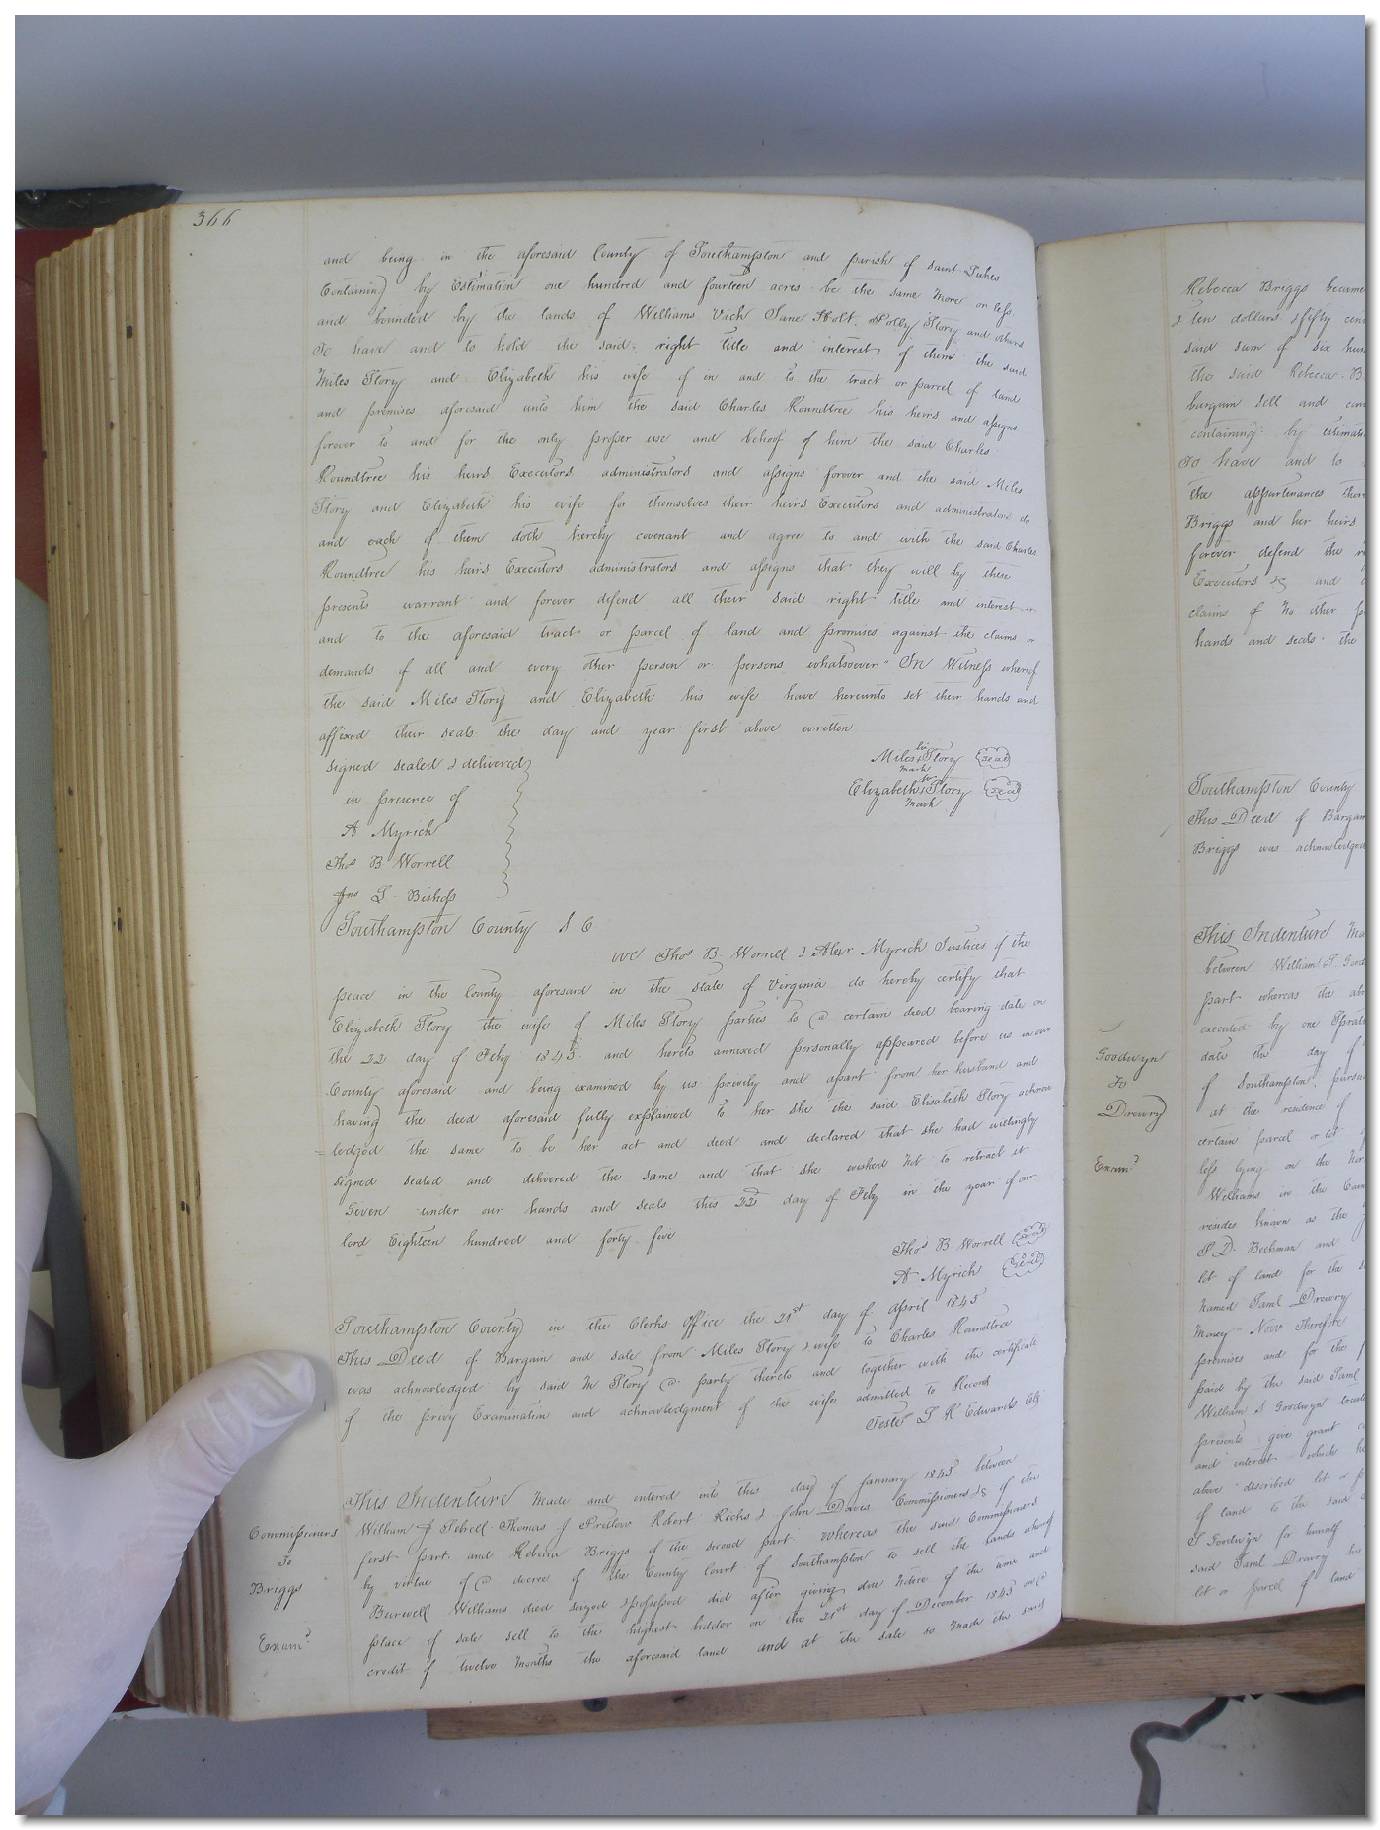 366
and being in the aforesaid County of Southampton and parish of Saint Lukes
Containing by Estimation one hundred and fourteen acres be the same more or less
and bounded by the lands of Williams Vick Jane Holt Polly Story and others
To have and to hold the said right title and interest of them the said
Miles Story and Elizabeth his wife of in and to the tract or parcel of land
and premises aforesaid unto him the said Charles Roundtree his heirs and assigns
forever to and for the only proper use and behoof of him the said Charles
Roundtree his heirs Executors administrators and assigns forever and the said Miles
Story and Elizabeth his wife for themselves their heirs Executors and administrators do
and each of them doth hereby covenant and agree to and with the said Charles
Roundtree his heirs Executors administrators and assigns that they will by these
presents warrant and forever defend all their said right title and interest in
and to the aforesaid tract or parcel of land and premises against the claims or
demands of all and every other person or persons whatsoever" In Witness whereof
the said Miles Story and Elizabeth his wife have hereunto set their hands and
affixed their seals the day and year first above written
signed sealed & delivered
in presence of
A Myrick
Thos B Worrell
Jno L. Bishop
his
Miles x Story seal
mark
her
Elizabeth x Story seal
mark
Southampton County S C
We Thos B. Worrell & Alexr Myrick Justices of the
peace in the County aforesaid in the state of Virginia do hereby certify that
Elizabeth Story the wife of Miles Story parties to a certain deed bearing date on
the 22 day of Feby 1845. and hereto annexed personally appeared before us in our
County aforesaid and being examined by us privily and apart from her husband and
having the deed aforesaid fully explained to her she the said Elizabeth Story acknow
=ledged the same to be her act and deed and declared that she had willingly
signed sealed and delivered the same and that she wished not to retract it
Given under our hands and seals this 22d day of Feby in the year of our
lord Eighteen hundred and forty five
Thos B Worrell seal
A Myrick seal
Southampton County in the Clerks Office the 21st day of April 1845
This Deed of Bargain and sale from Miles Story & wife to Charles Roundtree
was acknowledged by said M Story a party thereto and together with the certificate
of the privy Examination and acknowledgment of the wife admitted to Record
Teste L R Edwards Clk
Commissioners
To
Briggs
Examd
This Indenture Made and entered into this day of January 1845 between
William J Sebrell Thomas J Pretlow Robert Ricks & John Davis Commissioners &c of the
first part and Rebecca Briggs of the second part whereas the said Commissioners
by virtue of a decree of the County Court of Southampton to sell the lands whereof
Burwell Williams died seized & possessed did after giving due notice of the time and
place of sale sell to the highest bidder on the 21st day of December 1843 on a
credit of twelve months the aforesaid land and at the sale so made the said
Rebecca Briggs became
& ten dollars & fifty cen
said sum of six hun
the said Rebecca B
bargain sell and con
containing by estimati
To have and to
the appurtenances ther
Briggs and her heirs
forever defend the ri
Executors &c and
claims of no other p
hands and seals the
Southampton County
This Deed of Bargain
Briggs was acknowledged
Goodwyn
To
Drewry
Examd
This Indenture Ma
between William S. Good
part whereas the abo
executed by one
date the day of
of Southampton pursu
at the residence of
certain parcel or lot
less lying on the Nor
Williams in the Coun
resides known as the
Beekman and
lot of land for the
named Saml Drewry
Money Now Therefore
premises and for the
paid by the said Saml
William S Goodwyn
presents give grant
and interest which he
above described lot or p
of land to the said
S Goodwyn for himself
said Saml Drewry his
lot or parcel of land